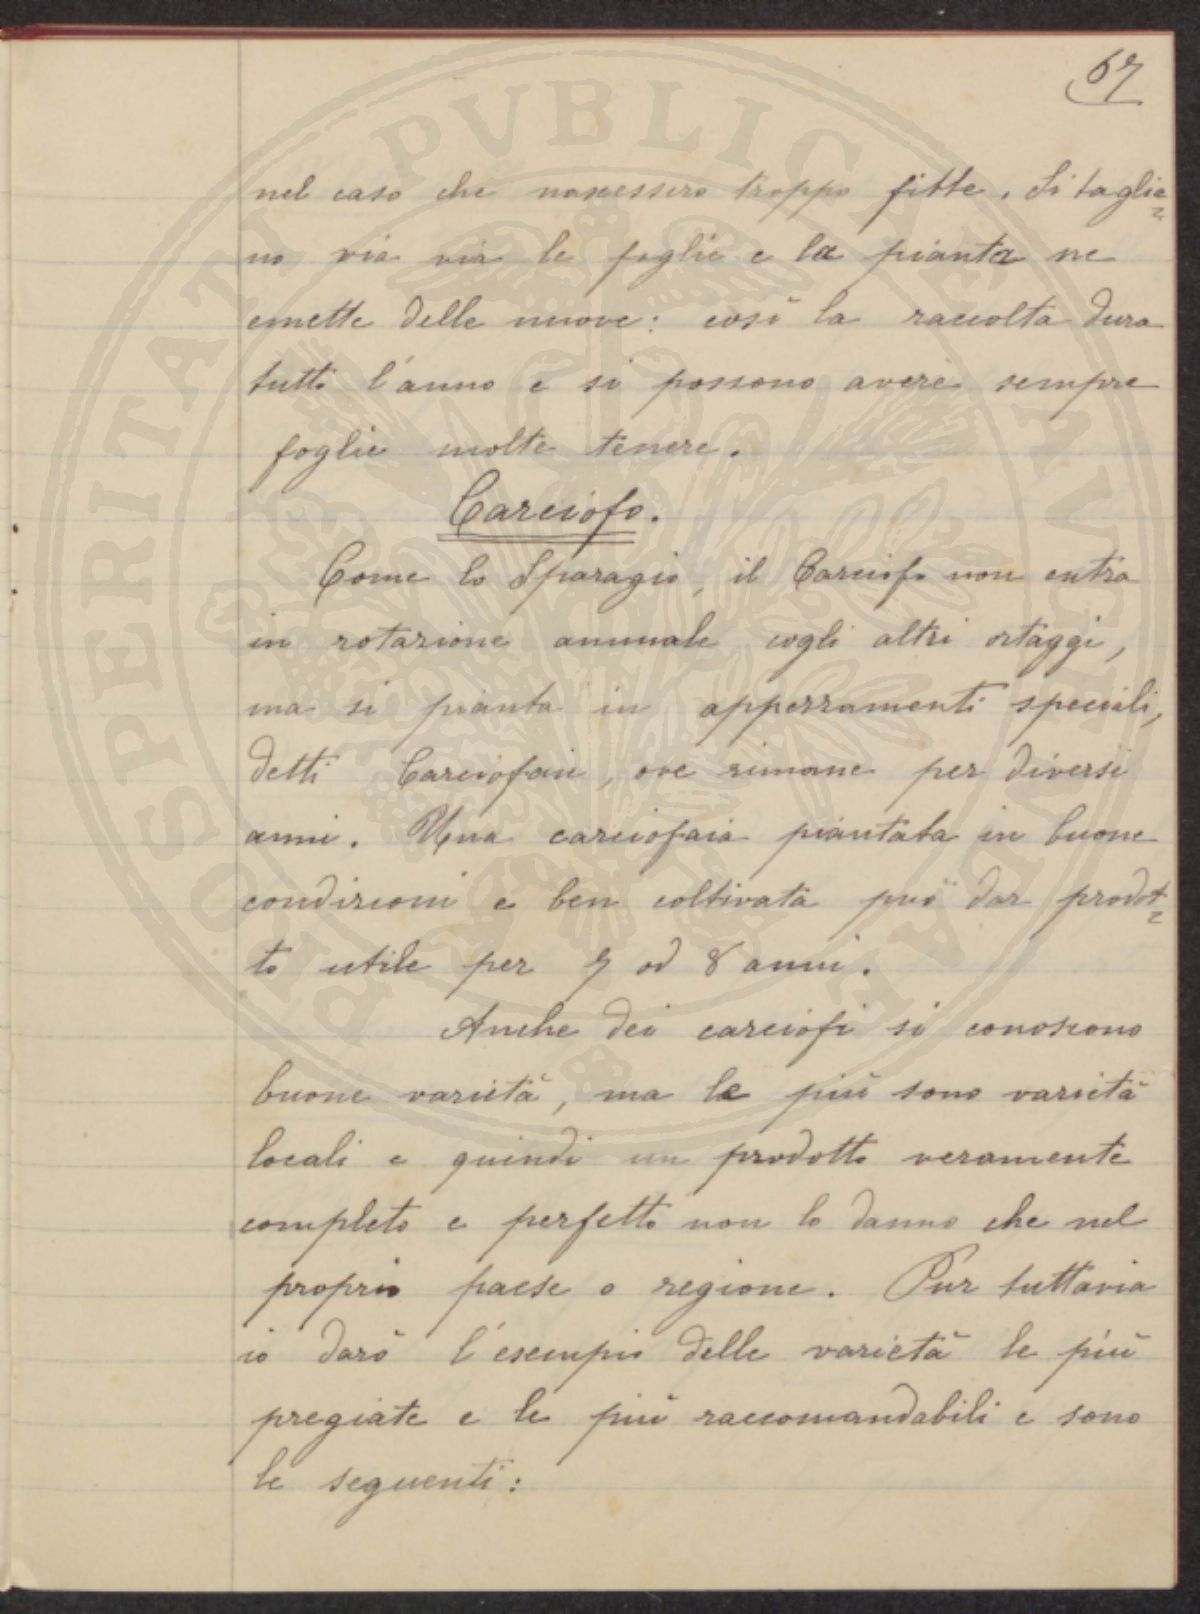 67
nel caso che nascessero troppo fitte. Si taglia=
no via via le foglie e la pianta ne
emette delle nuove: così la raccolta dura
tutto l'anno e si possono avere sempre
foglie molte tenere.
Carciofo.
Come lo Sparagio, il Carciofo non entra
in rotazione annuale cogli altri ortaggi,
ma si pianta in appezzamenti speciali,
detti Carciofaie, ove rimane per diversi
anni. Una carciofaia piantata in buone
condizioni e ben coltivata può dar prodot=
to utile per 7 od 8 anni.
Anche dei carciofi si conoscono
buone varietà, ma le più sono varietà
locali e quindi un prodotto veramente
completo e perfetto non lo danno che nel
proprio paese o regione. Pur tuttavia
io darò l'esempio delle varietà le più
pregiate e le più raccomandabili e sono
le seguenti:
PROSPERITATI PVBLICAE AVGENDAE